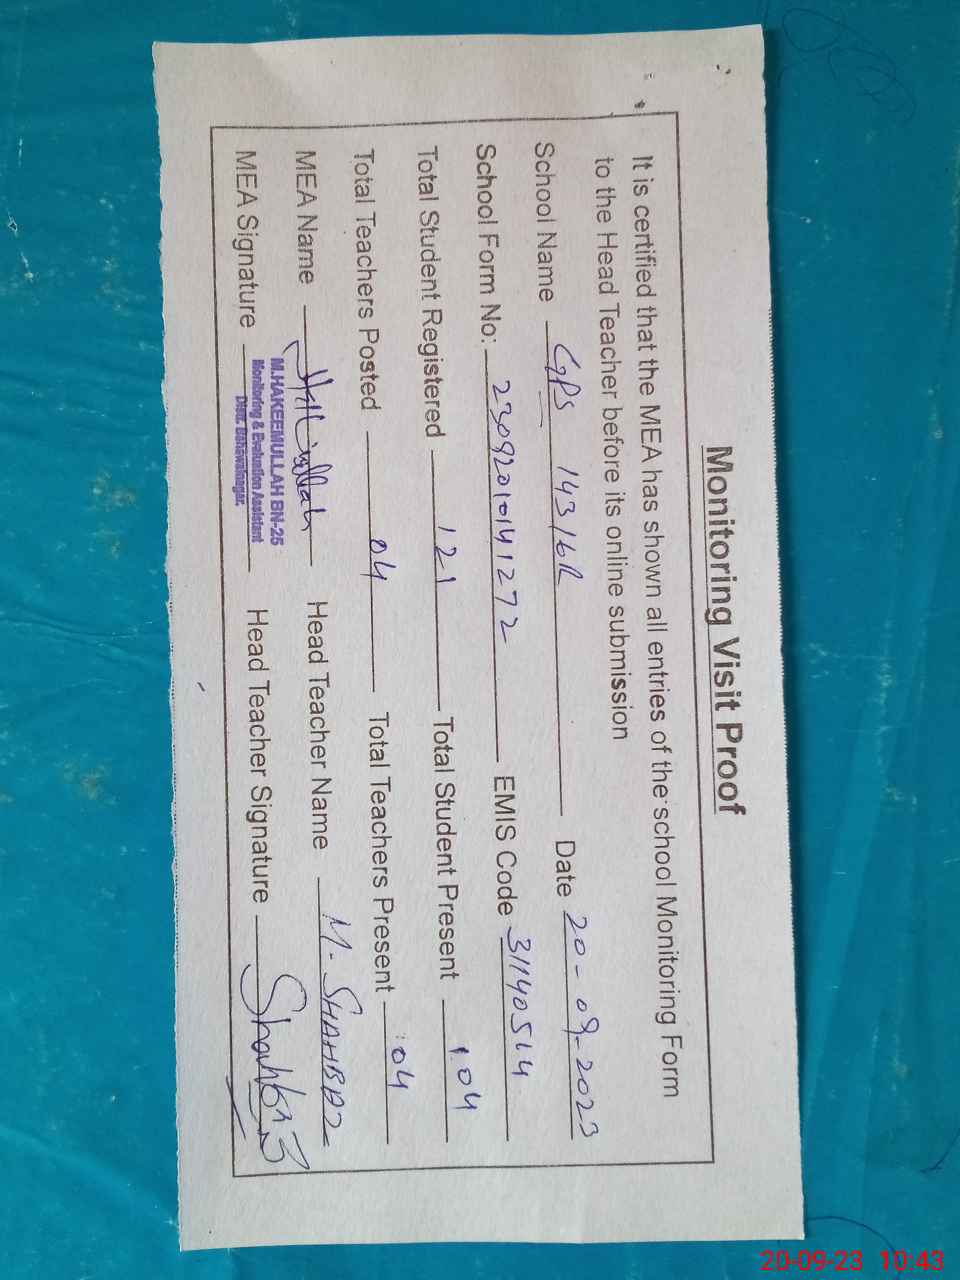 Monitoring Visit Proof
It is certified that the MEA has shown all entries of the school Monitoring Form
to the Head Teacher before its online submission
School Name GPS 143/6R Date 20-09-2023
School Form No: 23092010141272 EMIS Code 31140514
Total Student Registered 121 Total Student Present 104
Total Teachers Posted 04 Total Teachers Present 04
MEA Name Head Teacher Name M. SHAHBAZ
MEA Signature M.HAKEEMULLAH BN-25 Head Teacher Signature Shahbaz
Monitoring & Evaluation Assistant
Distt. Bahawalnagar.
20-09-23 10:43